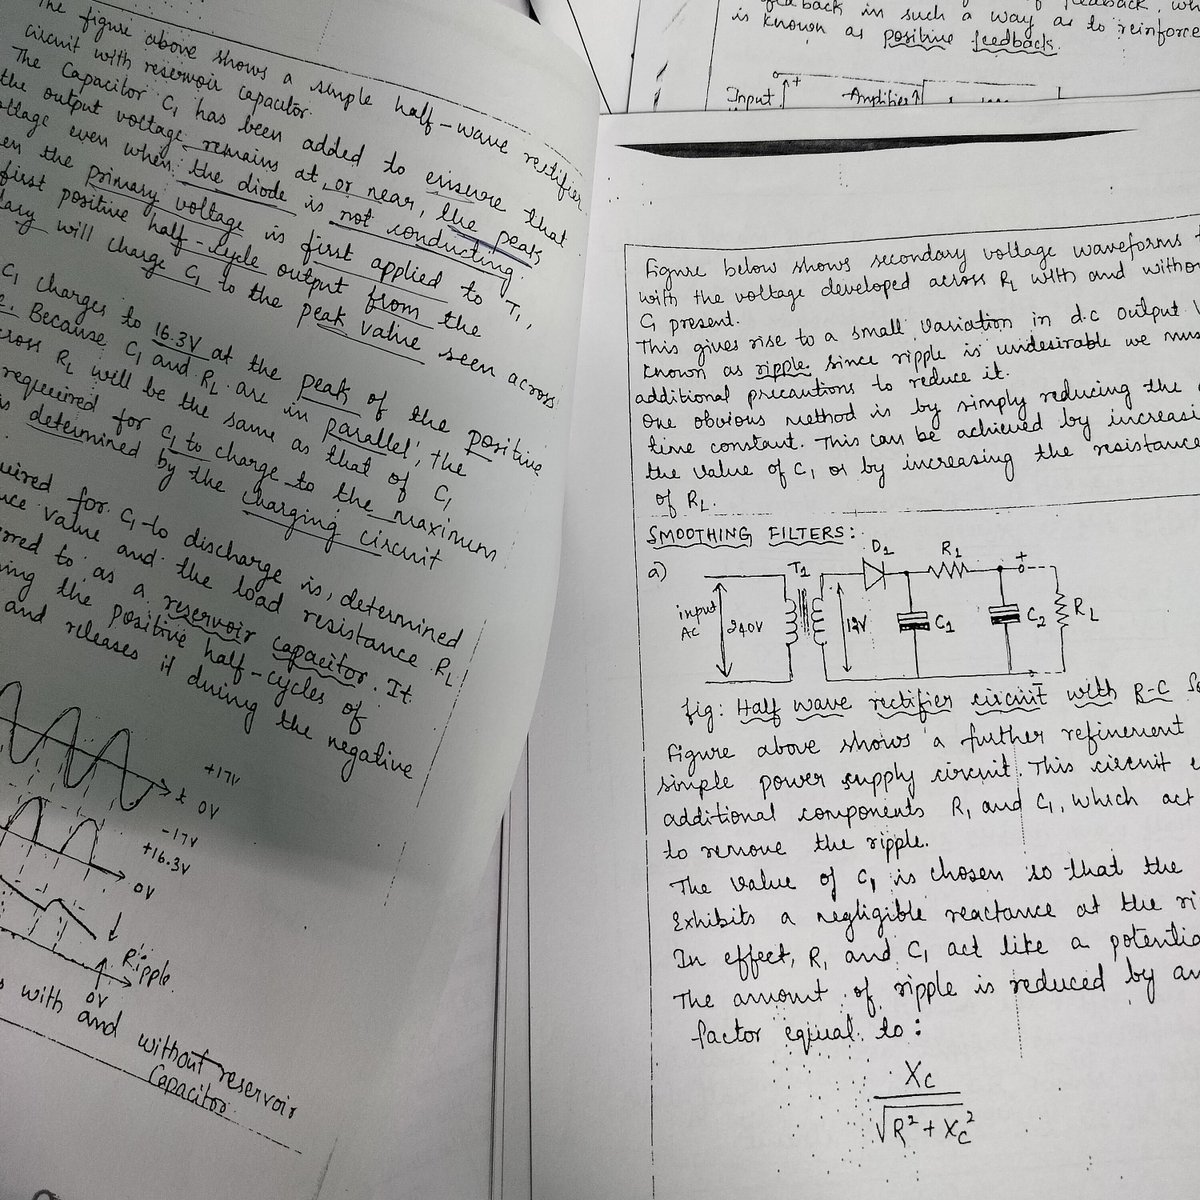 The figure above shows a simple half-wave rectifier
circuit with reservoir capacitor.
The Capacitor C1 has been added to ensure that
the output voltage remains at, or near, the peak
voltage even when the diode is not conducting.
the primary voltage is first applied to T1,
first positive half-cycle output from the
will charge C1 to the peak value seen across
C1 charges to 16.3V at the peak of the positive
Because C1 and RL are in Parallel, the
RL will be the same as that of C1
required for C1 to charge to the maximum
is determined by the charging circuit
for C1 to discharge is, determined
value and the load resistance RL
to as a reservoir capacitor. It
the positive half-cycles of
and releases it during the negative
t
+17V
0V
-17V
+16.3V
0V
Ripple.
0V
with and without reservoir
Capacitor.
back in such a way as to reinforce
is known as positive feedback.
Input
+
Amplifier
Figure below shows secondary voltage waveforms
with the voltage developed across RL with and
C1 present.
This gives rise to a small variation in d.c output
known as ripple. Since ripple is undesirable we
additional precautions to reduce it.
One obvious method is by simply reducing the
time constant. This can be achieved by
the value of C1 or by increasing the resistance
of RL.
SMOOTHING FILTERS:
a)
input
AC
240V
T1
12V
D1
R1
C1
C2
+
-
RL
fig: Half wave rectifier circuit with R-C
Figure above shows a further refinement
simple power supply circuit. This circuit
additional components R1 and C1, which act
to remove the ripple.
The value of C1 is chosen so that the
Exhibits a negligible reactance at the
In effect, R1 and C1 act like a
The amount of ripple is reduced by an
factor equal to:
Xc
√R²+Xc²